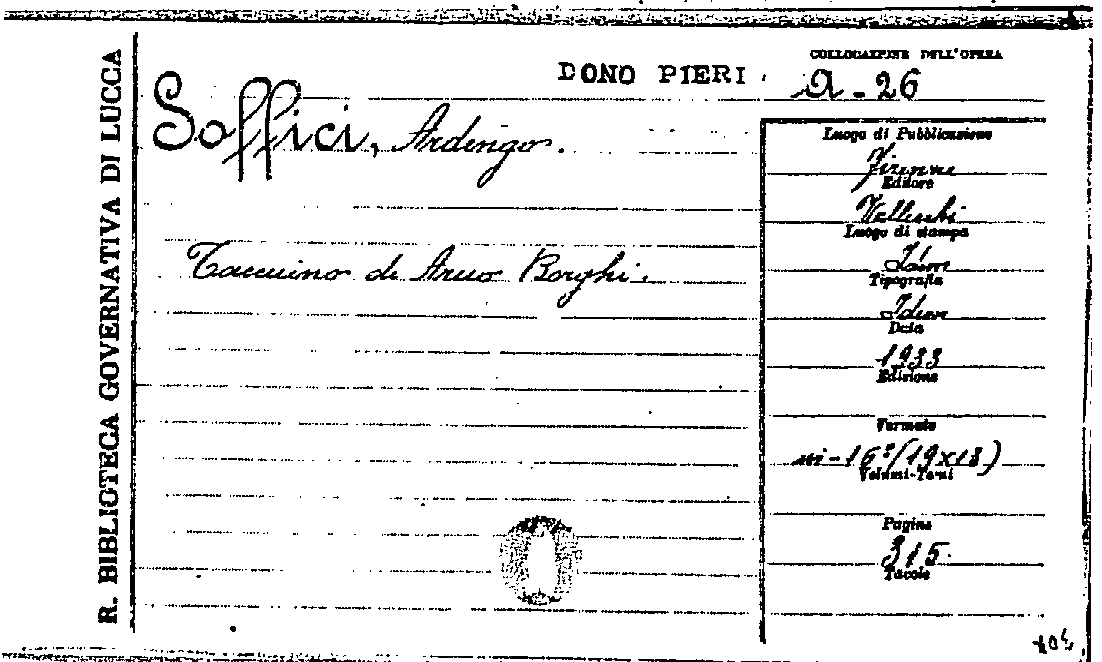 R. BIBLIOTECA GOVERNATIVA DI LUCCA
DONO PIERI.
COLLOCAZIONE DELL'OPERA
A-26
Soffici, Ardengo.
Taccuino di Arno Borghi.
Luogo di Pubblicazione
Firenze
Editore
Vallecchi
Luogo di stampa
Idem
Tipografia
Idem
Data
1933
Edizione
Formato
in-16º(19x13)
Volumi-Tomi
Pagine
315.
Tavole